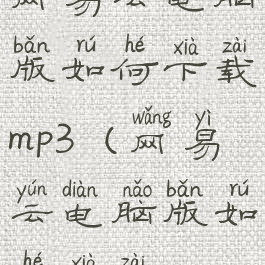 网易云电脑
bǎn rú hé xià zài
版如何下载
wǎng yì
mp3（网易
yún diàn nǎo bǎn rú
云电脑版如
hé xià zài